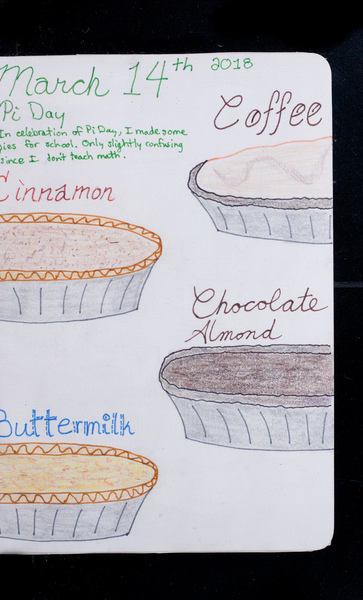 March 14th 2018
Pi Day
In celebration of Pi Day, I made some
pies for school. Only slightly confusing
since I don't teach math.
Coffee
Cinnamon
Chocolate
Almond
Buttermilk